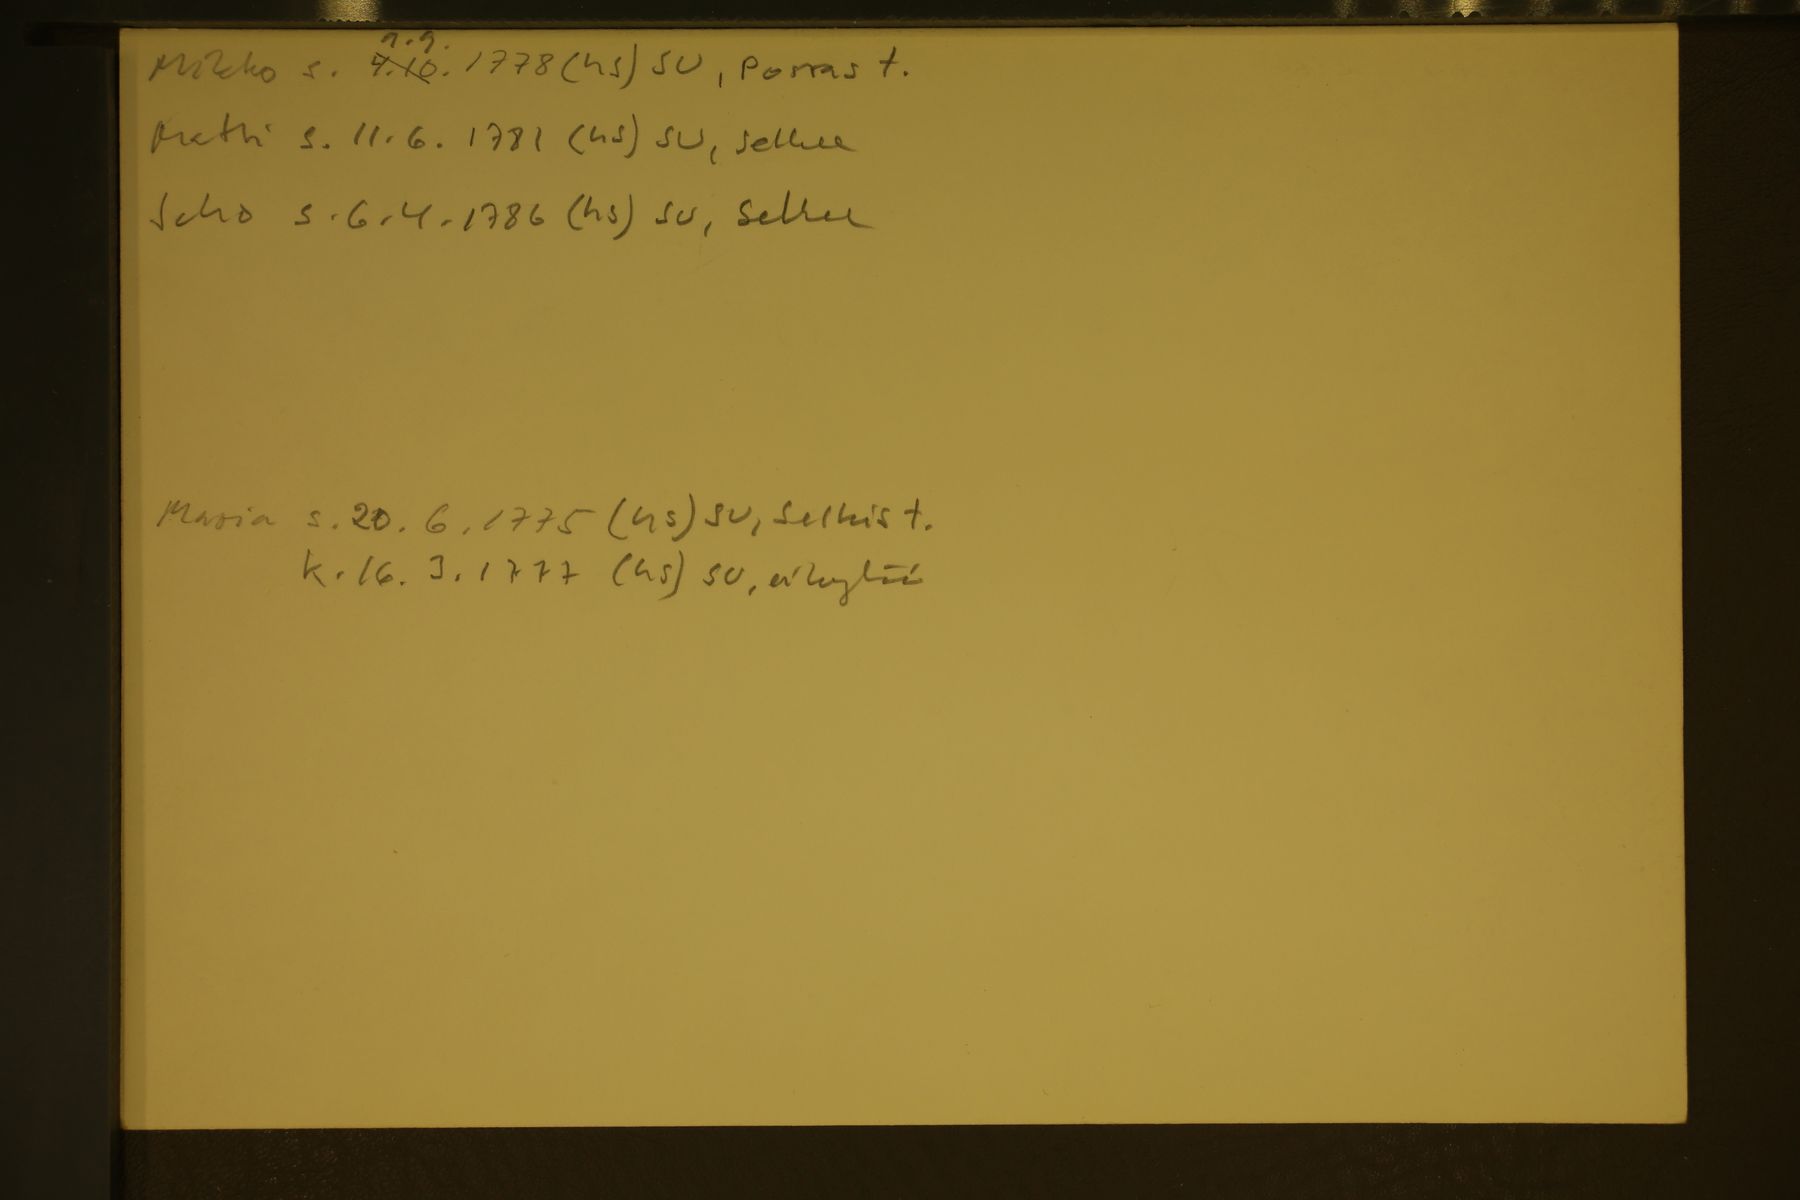 9.9.
Mikko s. 4.10. 1778 (hs) SU, Porras t.
Matti s. 11.6. 1781 (hs) SU, Selkee
s. 6.4. 1786 (hs) SU, Selkee
Maria s. 20. 6. 1775 (hs) SU, Selkis t.
k. 16. 3. 1777 (hs) SU,